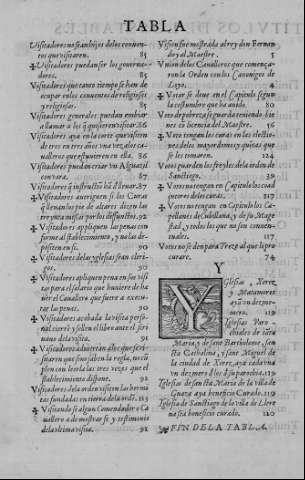 TABLA
Visitadores no se alojen de los conuen-
tos que visitaren. 85
Visitadores puedan ser los gouernado-
dores. 85
Visitadores que tanto tiempo se han de
ocupar en los conuentos de religiosos
y religiosas. 85
Visitadores generales puedan embiar
a llamar a los que quisieren visitar. 86
Visitadores que en la corte que visiten
de tres en tres años vna vez, alos ca-
ualleros que estuuieren en ella. 86
Visitadores puedan criar vn Alguazil
con vara. 87
Visitadores q instructiõ hã d lleuar. 87
Visitadores aueriguen si los Curas
dizen
los por los diffunctos. 92
Visitadores appliquen las penas con
forme al stablecimiento, y no las de-
positen en si. 90
Visitadores de las yglesias sean cleri-
gos. 90
Visitadores apliquen pena en sus visi-
tas para el
el Cauallero que fuere a execu-
tar las penas. 90
Visitadores acabada la visita perso-
nal cierrẽ y sellen el libro ante el scri-
uano dela visita. 91
Visitadores
suaren que nos saben la regla, no cũ
plen con leerla las tres vezes que el
establecimiento dispone. 92
Visitadores de la orden visiten las hermi
tas fundadas en tierra de la ordẽ. 113
Visitando se algun Comendador o Ca
uallero a de mostrar se su testimonio
de la vltima visita. 92
Vision fue mostrada al rey don Fernan
do y al Maestre. 5
Vnion de los Caualleros que començа-
ron la Orden con los Canonigos de
Loyo. 4
Votar se deue en el Capitulo segun
la costumbre que ha auido. 80
Voto de pobreza se guarda teniendo bie
nes cõ licencia del Maestre. 56
Voto tengan los curas en las electio-
nes de los mayordomos, y quitas que
se les tomaren. 124
Votos pueden los freyles dela orden de
Sanctiago. 39
Votos no tengan en Capitulos los quad
queros de los curas. 117
Votos no tengan en Capitulos los Ca-
pellenes de Cubillana, y de su Mage
stad, y todos los que no son conuen-
tuales. 117
Votos no se den para Treze al que lo pro
curare. 74
Y
Yglesias, Xerez
y Matamoros
aya
mero. 119
Yglesias Paro-
chiales de sancta
Maria, y de sant Bartholome, san
cta Catholina, y sant Miguel de
la ciudad de Xerez, aya cada vna
vn dezmero d los d su parochia. 119
Yglesias de sancta Maria de la villa de
Guaza aya beneficio Curado. 119
Yglesia de Sanctiago de la villa de Llere
na sea beneficio curado. 120
FIN DE LA TABLA.